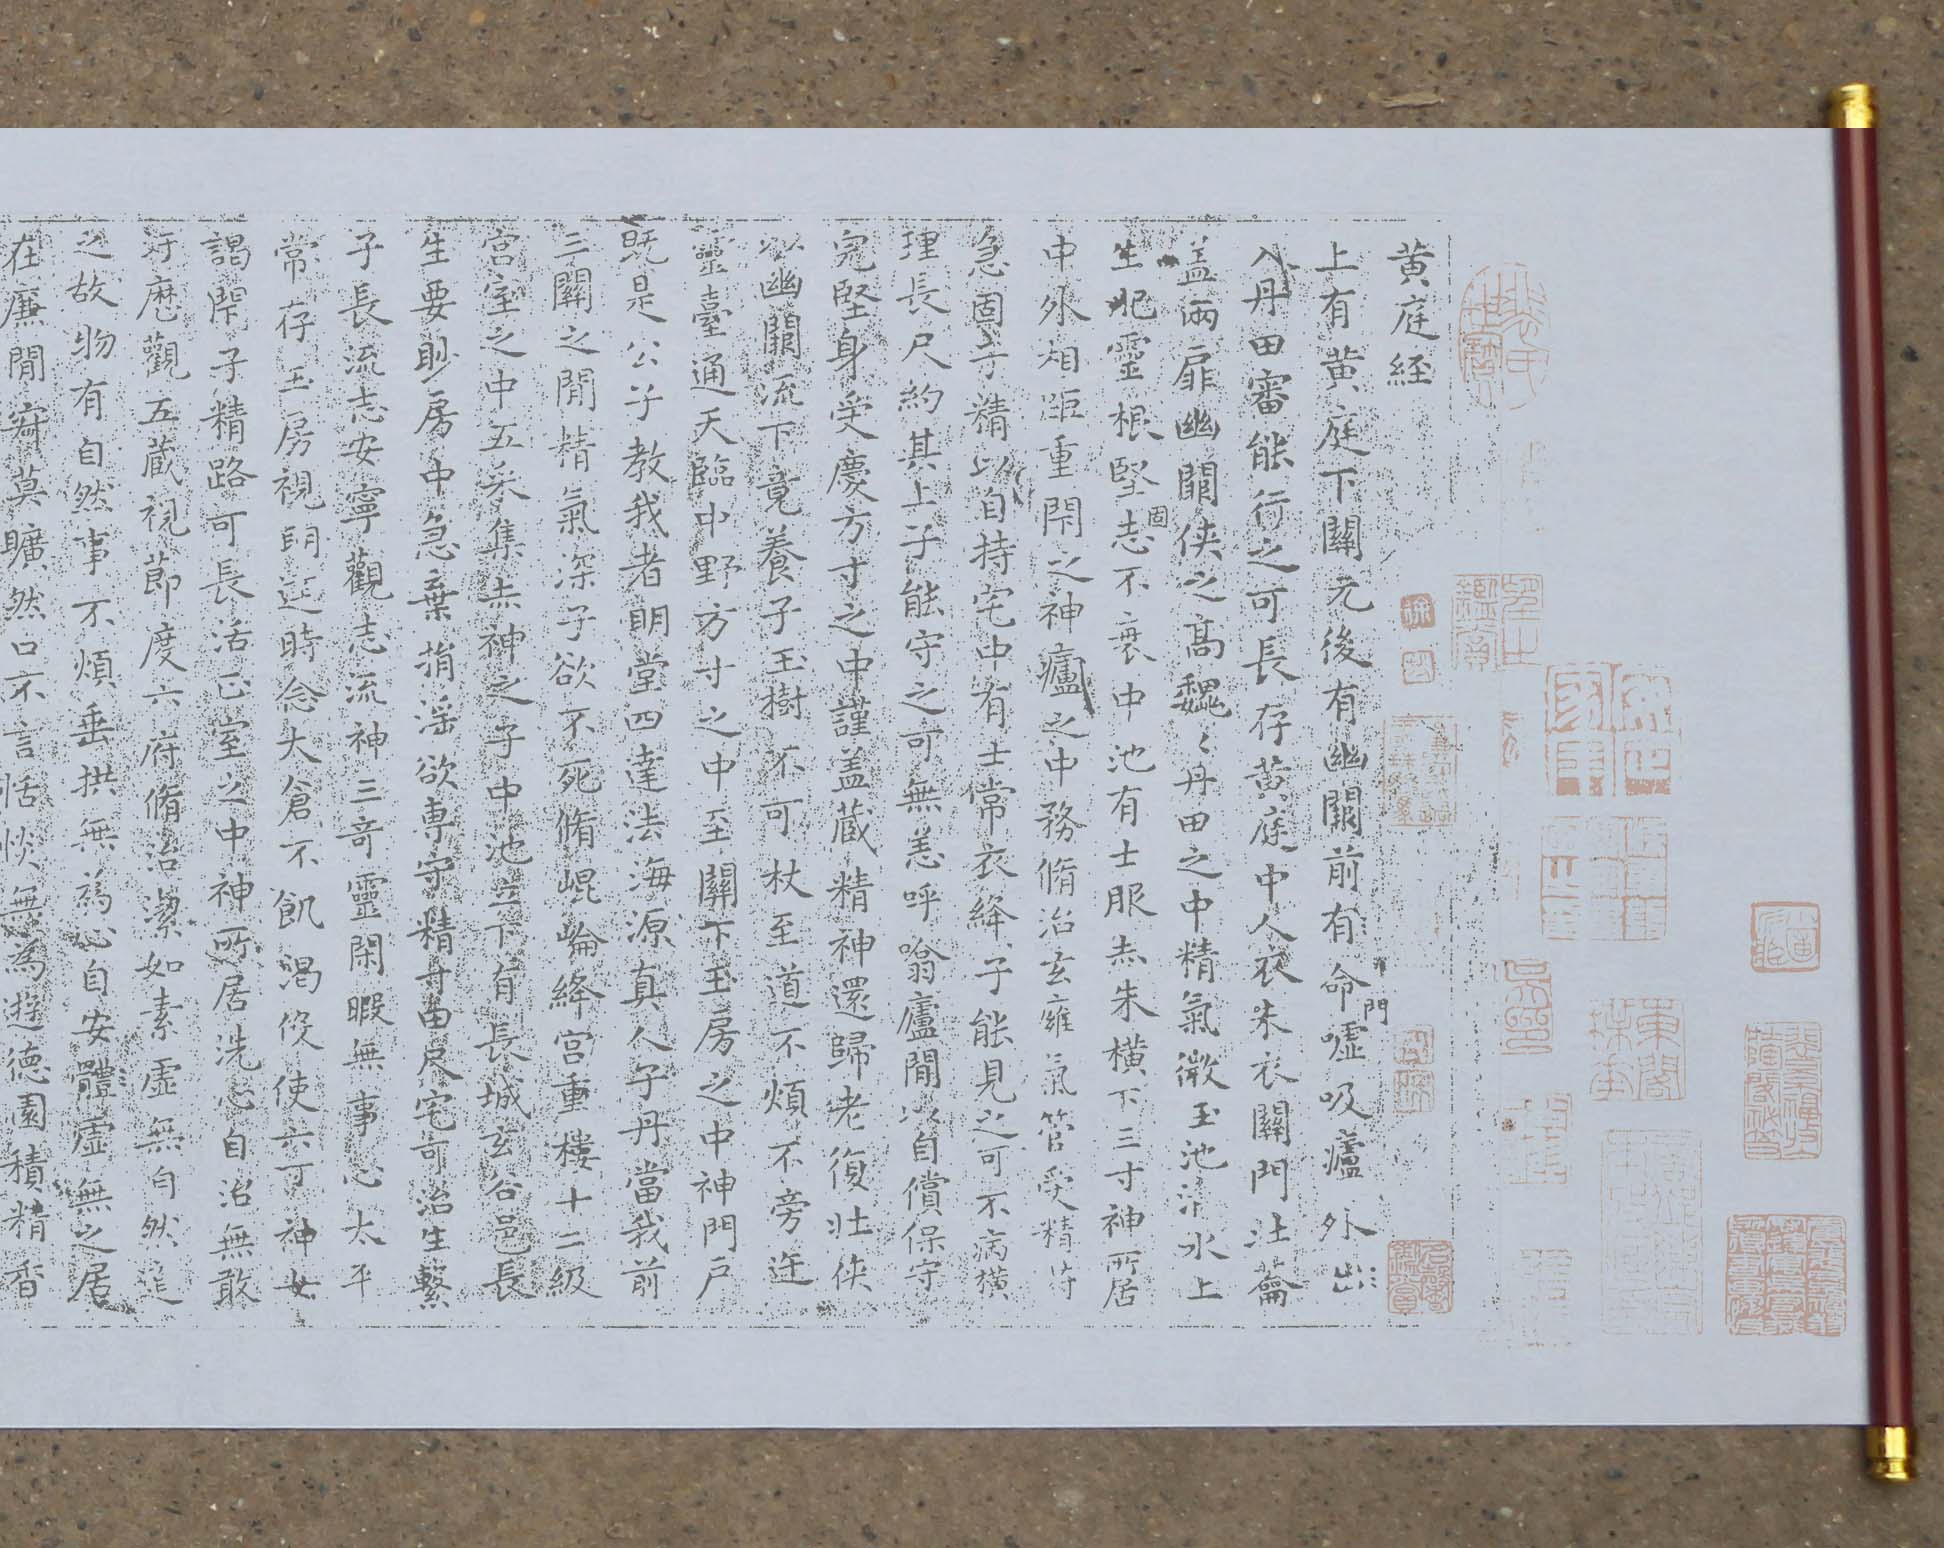 黄庭経
上有黄庭下關元後有幽闕前有命嘘吸廬外出
門
入丹田審能行之可長存黄庭中人衣朱衣關門壮蘥
盖兩扉幽闕侠之高魏々丹田之中精氣微玉池清水上
生肥靈根堅志不衰中池有士服赤朱橫下三寸神所居
固
中外相距重閇之神廬之中務脩治玄癰氣管受精符
急固子精以自持宅中有士常衣絳子能見之可不病橫
理長尺約其上子能守之可無恙呼噏廬間以自償保守
完堅身受慶方寸之中謹盖蔵精神還歸老復壮侠
以幽闕流下竟養子玉樹不可杖至道不煩不旁迕
靈臺通天臨中野方寸之中至關下玉房之中神門户
既是公子教我者明堂四達法海源真人子丹當我前
三關之間精氣深子欲不死脩崐崘絳宫重樓十二級
宫室之中五采集赤神之子中池立下有長城玄谷邑長
生要眇房中急棄捐淫欲専守精寸田尺宅可治生繫
子長流志安寧觀志流神三奇靈閑暇無事心太平
常存玉房視明達時念大倉不飢渴伇使六丁神女
謁閇子精路可長活正室之中神所居洗心自治無敢
汙歴觀五蔵視節度六府脩治潔如素虚無自然道
之故物有自然事不煩垂拱無為心自安體虚無之居
在廉間寂莫曠然口不言恬惔無為遊德園積精香